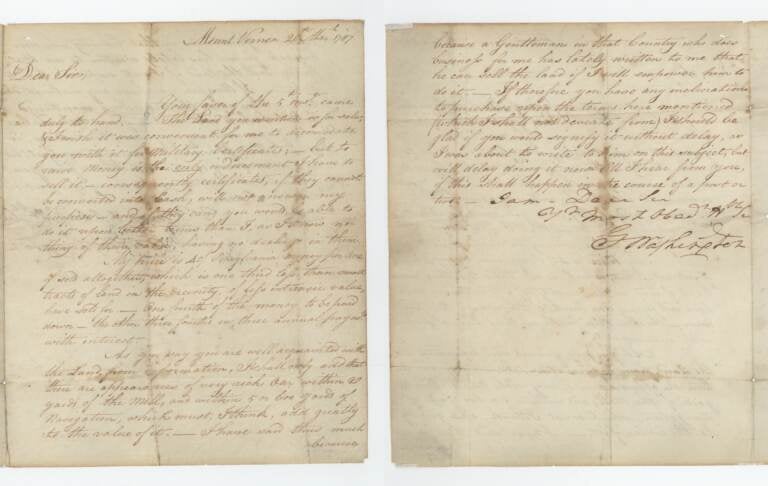 Mount Vernon 20th Novr. 1787
Dear Sir,
Your favor of the 5th inst. came
duly to hand. The Land you mention is for sale,
& I wish it was convenient for me to accomodate
you with it for Military Certificates; — but to
raise money is the only inducement I have to
sell it — consequently certificates, if they cannot
be converted into Cash, will not answer my
purposes — and if they can, you would be able to
do it upon better terms than I, as I know no-
thing of their value having no dealings in them.
My price is 40/ Pensylvania money per Acre
if sold altogether, which is one third less than small
tracts of land in the vicinity, of less intrinsic value,
have sold for. — One fourth of the money to be paid
down — the other three fourths in three annual paymts
with interest.
As you say you are well acquainted with
the Land, from information, I shall only add that
there are appearances of very rich Oar within 28
yards of the Mill, and within 5 or 600 yards of
Navigation, which must, I think, add greatly
to the value of it. — I have said thus much
because
because a Gentleman in that Country who does
business for me has lately written to me that
he can sell the land if I will empower him to
do it. — If therefore you have any inclination
to purchase upon the terms here mentioned
(which I shall not deviate from) I should be
glad if you would signify it without delay, as
I was about to write to him on this subject, but
will delay doing it now till I hear from you,
if this shall happen in the course of a post or
two. — I am — Dear Sir
Yr. Most Obedt. H'ble Ser
Go. Washington